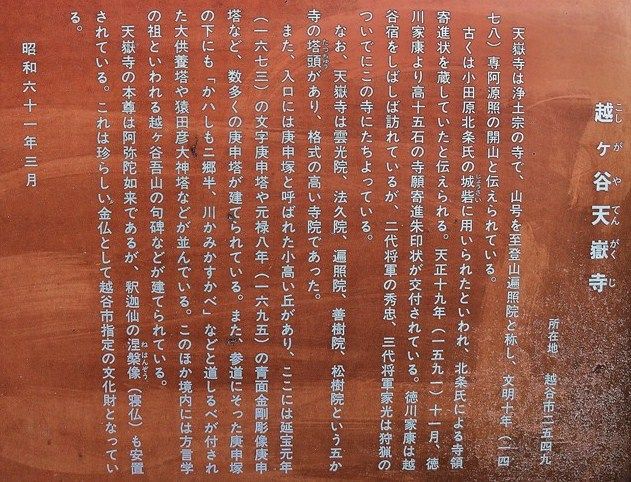 越ヶ谷天嶽寺
こしがやてんがくじ
所在地 越谷市一五四九
天嶽寺は浄土宗の寺で、山号を至登山遍照院と称し、文明十年(一四
七八)専阿源照の開山と伝えられている。
古くは小田原北条氏の城砦に用いられたといわれ、北条氏による寺領
じょうさい
寄進状を蔵していたと伝えられる。天正十九年(一五九一)十一月、徳
川家康より高十五石の寺願寄進朱印状が交付されている。徳川家康は越
谷宿をしばしば訪れているが、二代将軍の秀忠、三代将軍家光は狩猟の
ついでにこの寺にたちよっている。
なお、天嶽寺は雲光院、法久院、遍照院、善樹院、松樹院という五か
寺の塔頭があり、格式の高い寺院であった。
たっちゅう
また、入口には庚申塚と呼ばれた小高い丘があり、ここには延宝元年
(一六七三)の文字庚申塔や元禄八年(一六九五)の青面金剛彫像庚申
塔など、数多くの庚申塔が建てられている。また、参道にそった庚申塚
の下にも「かハしも二郷半、川かみかすかべ」などと道しるべが付され
た大供養塔や猿田彦大神塔などが並んでいる。このほか境内には方言学
の祖といわれる越ヶ谷吾山の句碑などが建てられている。
天嶽寺の本尊は阿弥陀如来であるが、釈迦仙の涅槃像(寝仏)も安置
ねはんぞう
されている。これは珍らしい金仏として越谷市指定の文化財となってい
る。
昭和六十一年三月